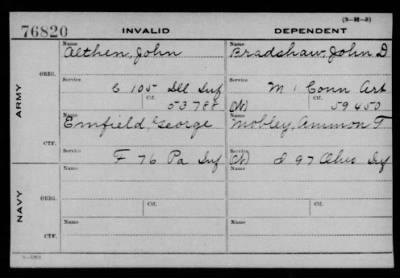 (3-H-2)
76820 INVALID DEPENDENT
Name Name
Althen, John Bradshaw, John D
ORIG. Service Service
ARMY
C 105 Ill Inf M 1 Conn Art
Ctf. Ctf.
53788 (N) 59450
Name Name
Emfield, George Mobley, Ammon T
CTF. Service Service
F 76 Pa Inf (N) I 97 Ohio Inf
NAVY
Name Name
ORIG. Service Ctf. Service Ctf.
Name Name
CTF. Service Service